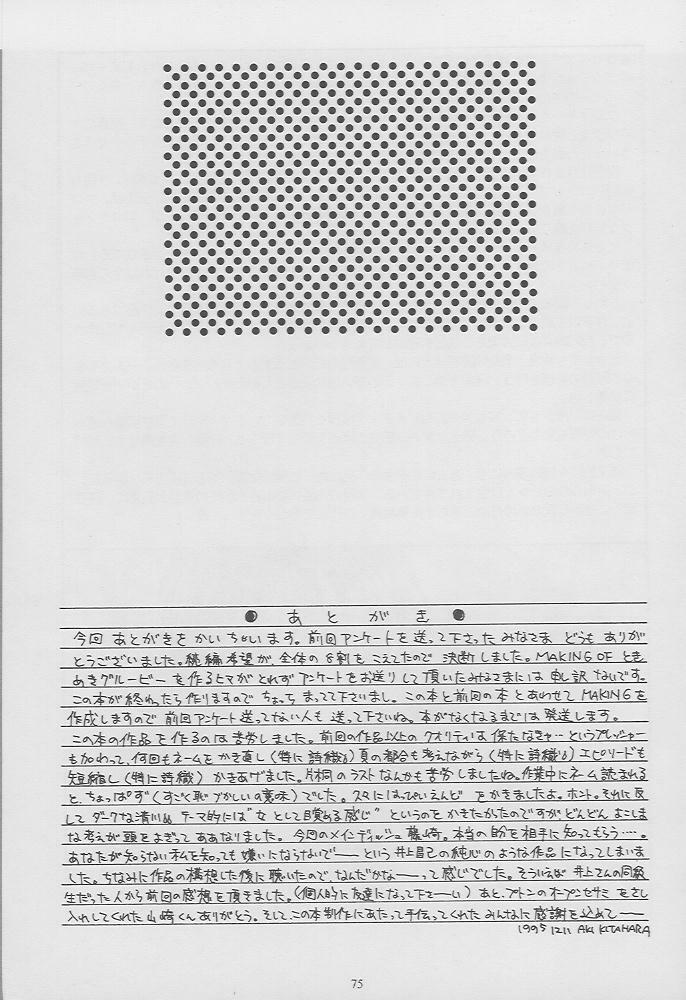 ● あとがき ●
今回 あとがきを かいちゃいます。前回アンケートを送って下さった みなさま どうも ありが
とうございました。続編希望が、全体の8割を こえてたので 決断しました。MAKING OF とき
めきグルービー を作るヒマがとれず アンケートをお送りして頂いたみなさまには 申し訳ないです。
この本が終わったら作りますので ちょっち まってて下さいまし。この本と前回の本とあわせて MAKINGを
作成しますので 前回アンケート送ってない人も 送って下さいね。本がなくなるまでは 発送します。
この本の作品を作るのは 苦労しました。前回の作品以上の クオリティは 保たなきゃーというプレッシャー
も加わって、何回もネームを かき直し(特に 詩織)頁の都合も考えながら(特に詩織)エピソードも
短縮し(特に詩織) かきあげました。片桐の ラストなんかも苦労しましたね。作業中にネーム読まれる
と、ちょっぱず(すごく恥ずかしいの意味)でした。スタには はっぴいえんど をかきましたよ。ホント。それに反
して ダークな清川 テーマ的には"女として目覚める感じ" というのを かきたかったのですが どんどん よこしま
な考えが 頭をよぎって ああなりました。 今回のメインディッシュ 藤崎。本当の自分を相手に知ってもらう…。
あなたが知らない私を知っても 嫌いにならないで―― という 井上昌己の純心のような作品 になってしまいま
した。ちなみに作品の構想した後に聴いたので、なんだかなー――って感じでした。そういえば 井上さんの同級
生だった人から前回の感想を頂きました。(個人的に友達になって下さーい) あと、プトンのオープンセサミ をさし
入れしてくれた 山崎くんありがとう。そして、この本制作にあたって手伝ってくれた みんなに 感謝を込めて――
1995 12 11 AKI KITAHARA
75